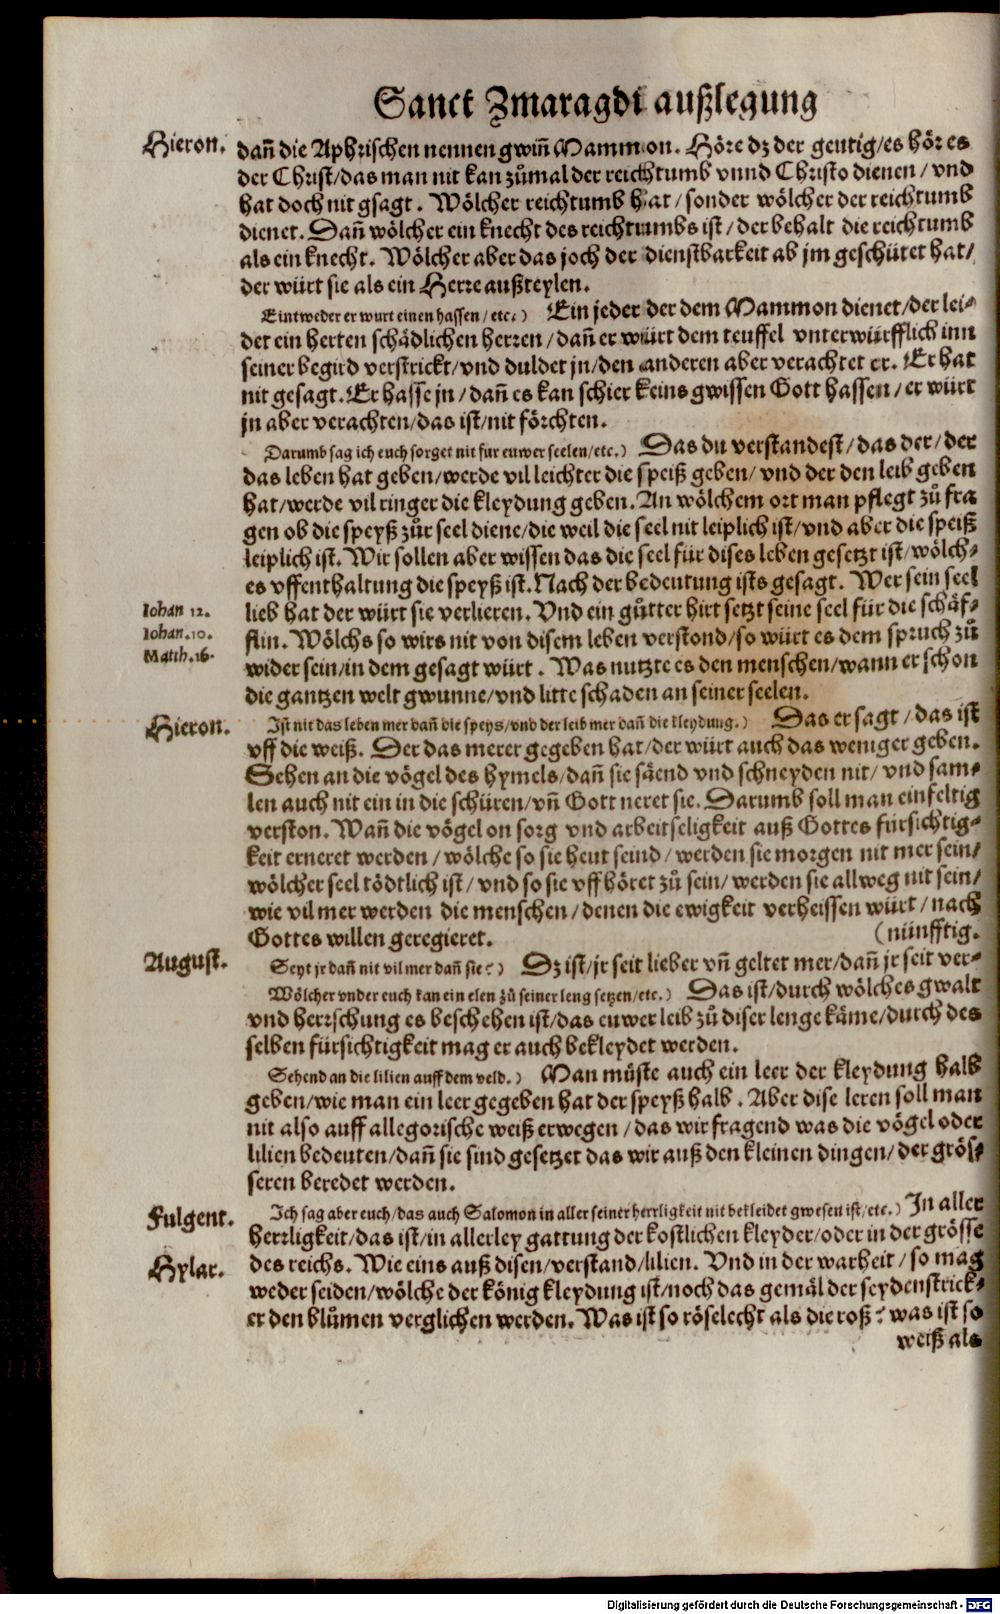 Sanct Zmaragdi außlegung
Hieron. dañ die Aphrischen nennen gwiñ Mammon. Höre dz der geutig/es hör es
der Christ/das man nit kan zůmal der reichtumb vnnd Christo dienen/vnd
hat doch nit gsagt. Wölcher reichtumb hat/sonder wölcher der reichtumb
dienet. Dañ wölcher ein knecht des reichtumbs ist/der behalt die reichtumb
als ein knecht. Wölcher aber das joch der dienstbarkeit ab jm geschütet hat/
der würt sie als ein Herre außteylen.
Eintweder er wurt einen hassen/etc.) Ein jeder der dem Mammon dienet/der lei-
det ein herten schädlichen herren/dañ er würt dem teuffel vnterwürfflich inn
seiner begird verstrickt/vnd duldet jn/den anderen aber verachtet er. Er hat
nit gesagt. Er hasse jn/dañ es kan schier keins gwissen Gott hassen/er würt
jn aber verachten/das ist/nit förchten.
Darumb sag ich euch sorget nit fur euwer seelen/etc.) Das du verstandest/das der/der
das leben hat geben/werde vil leichter die speiß geben/vnd der den leib geben
hat/werde vil ringer die kleydung geben. An wölchem ort man pflegt zů fra
gen ob die speyß zůr seel diene/die weil die seel nit leiplich ist/vnd aber die speiß
leiplich ist. Wir sollen aber wissen das die seel für dises leben gesetzt ist/wölch-
es vffenthaltung die speyß ist. Nach der bedeutung ists gesagt. Wer sein seel
Iohan 12. lieb hat der würt sie verlieren. Vnd ein gůtter hirt setzt seine seel für die schäf-
Iohan.10. flin. Wölchs so wirs nit von disem leben verstond/so würt es dem spruch zů
Matth.16. wider sein/in dem gesagt würt. Was nutzte es den menschen/wann er schon
die gantzen welt gwunne/vnd litte schaden an seiner seelen.
Hieron. Ist nit das leben mer dañ die speys/vnd der leib mer dañ die kleydung.) Das er sagt/das ist
vff die weiß. Der das merer gegeben hat/der würt auch das weniger geben.
Sehen an die vögel des hymels/dañ sie säend vnd schneyden nit/vnd sam-
len auch nit ein in die schüren/vñ Gott neret sie. Darumb soll man einfeltig
verston. Wañ die vögel on sorg vnd arbeitseligkeit auß Gottes fürsichtig-
keit erneret werden/wölche so sie heut seind/werden sie morgen nit mer sein/
wölcher seel tödtlich ist/vnd so sie vffhöret zů sein/werden sie allweg nit sein/
wie vil mer werden die menschen/denen die ewigkeit verheissen würt/nach
Gottes willen geregieret. (nünfftig.
August. Seyt jr dañ nit vil mer dañ sie?) Dz ist/jr seit lieber vñ geltet mer/dañ jr seit ver-
Wölcher vnder euch kan ein elen zů seiner leng setzen/etc.) Das ist/durch wölches gwalt
vnd herrschung es beschehen ist/das euwer leib zů diser lenge käme/durch des
selben fürsichtigkeit mag er auch bekleydet werden.
Sehend an die lilien auff dem veld.) Man müste auch ein leer der kleydung halb
geben/wie man ein leer gegeben hat der speyß halb. Aber dise leren soll man
nit also auff allegorische weiß erwegen/das wir fragend was die vögel oder
lilien bedeuten/dañ sie sind gesetzet das wir auß den kleinen dingen/der grös-
seren beredet werden.
Fulgent. Ich sag aber euch/das auch Salomon in aller seiner herrligkeit nit bekleidet gwesen ist/etc.) In aller
herrligkeit/das ist/in allerley gattung der kostlichen kleyder/oder in der grösse
Hylar. des reichs. Wie eins auß disen/verstand/lilien. Vnd in der warheit/so mag
weder seiden/wölche der könig kleydung ist/noch das gemäl der seydenstrick-
er den blůmen verglichen werden. Was ist so röselecht als die roß? was ist so
weiß als
Digitalisierung gefördert durch die Deutsche Forschungsgemeinschaft - DFG